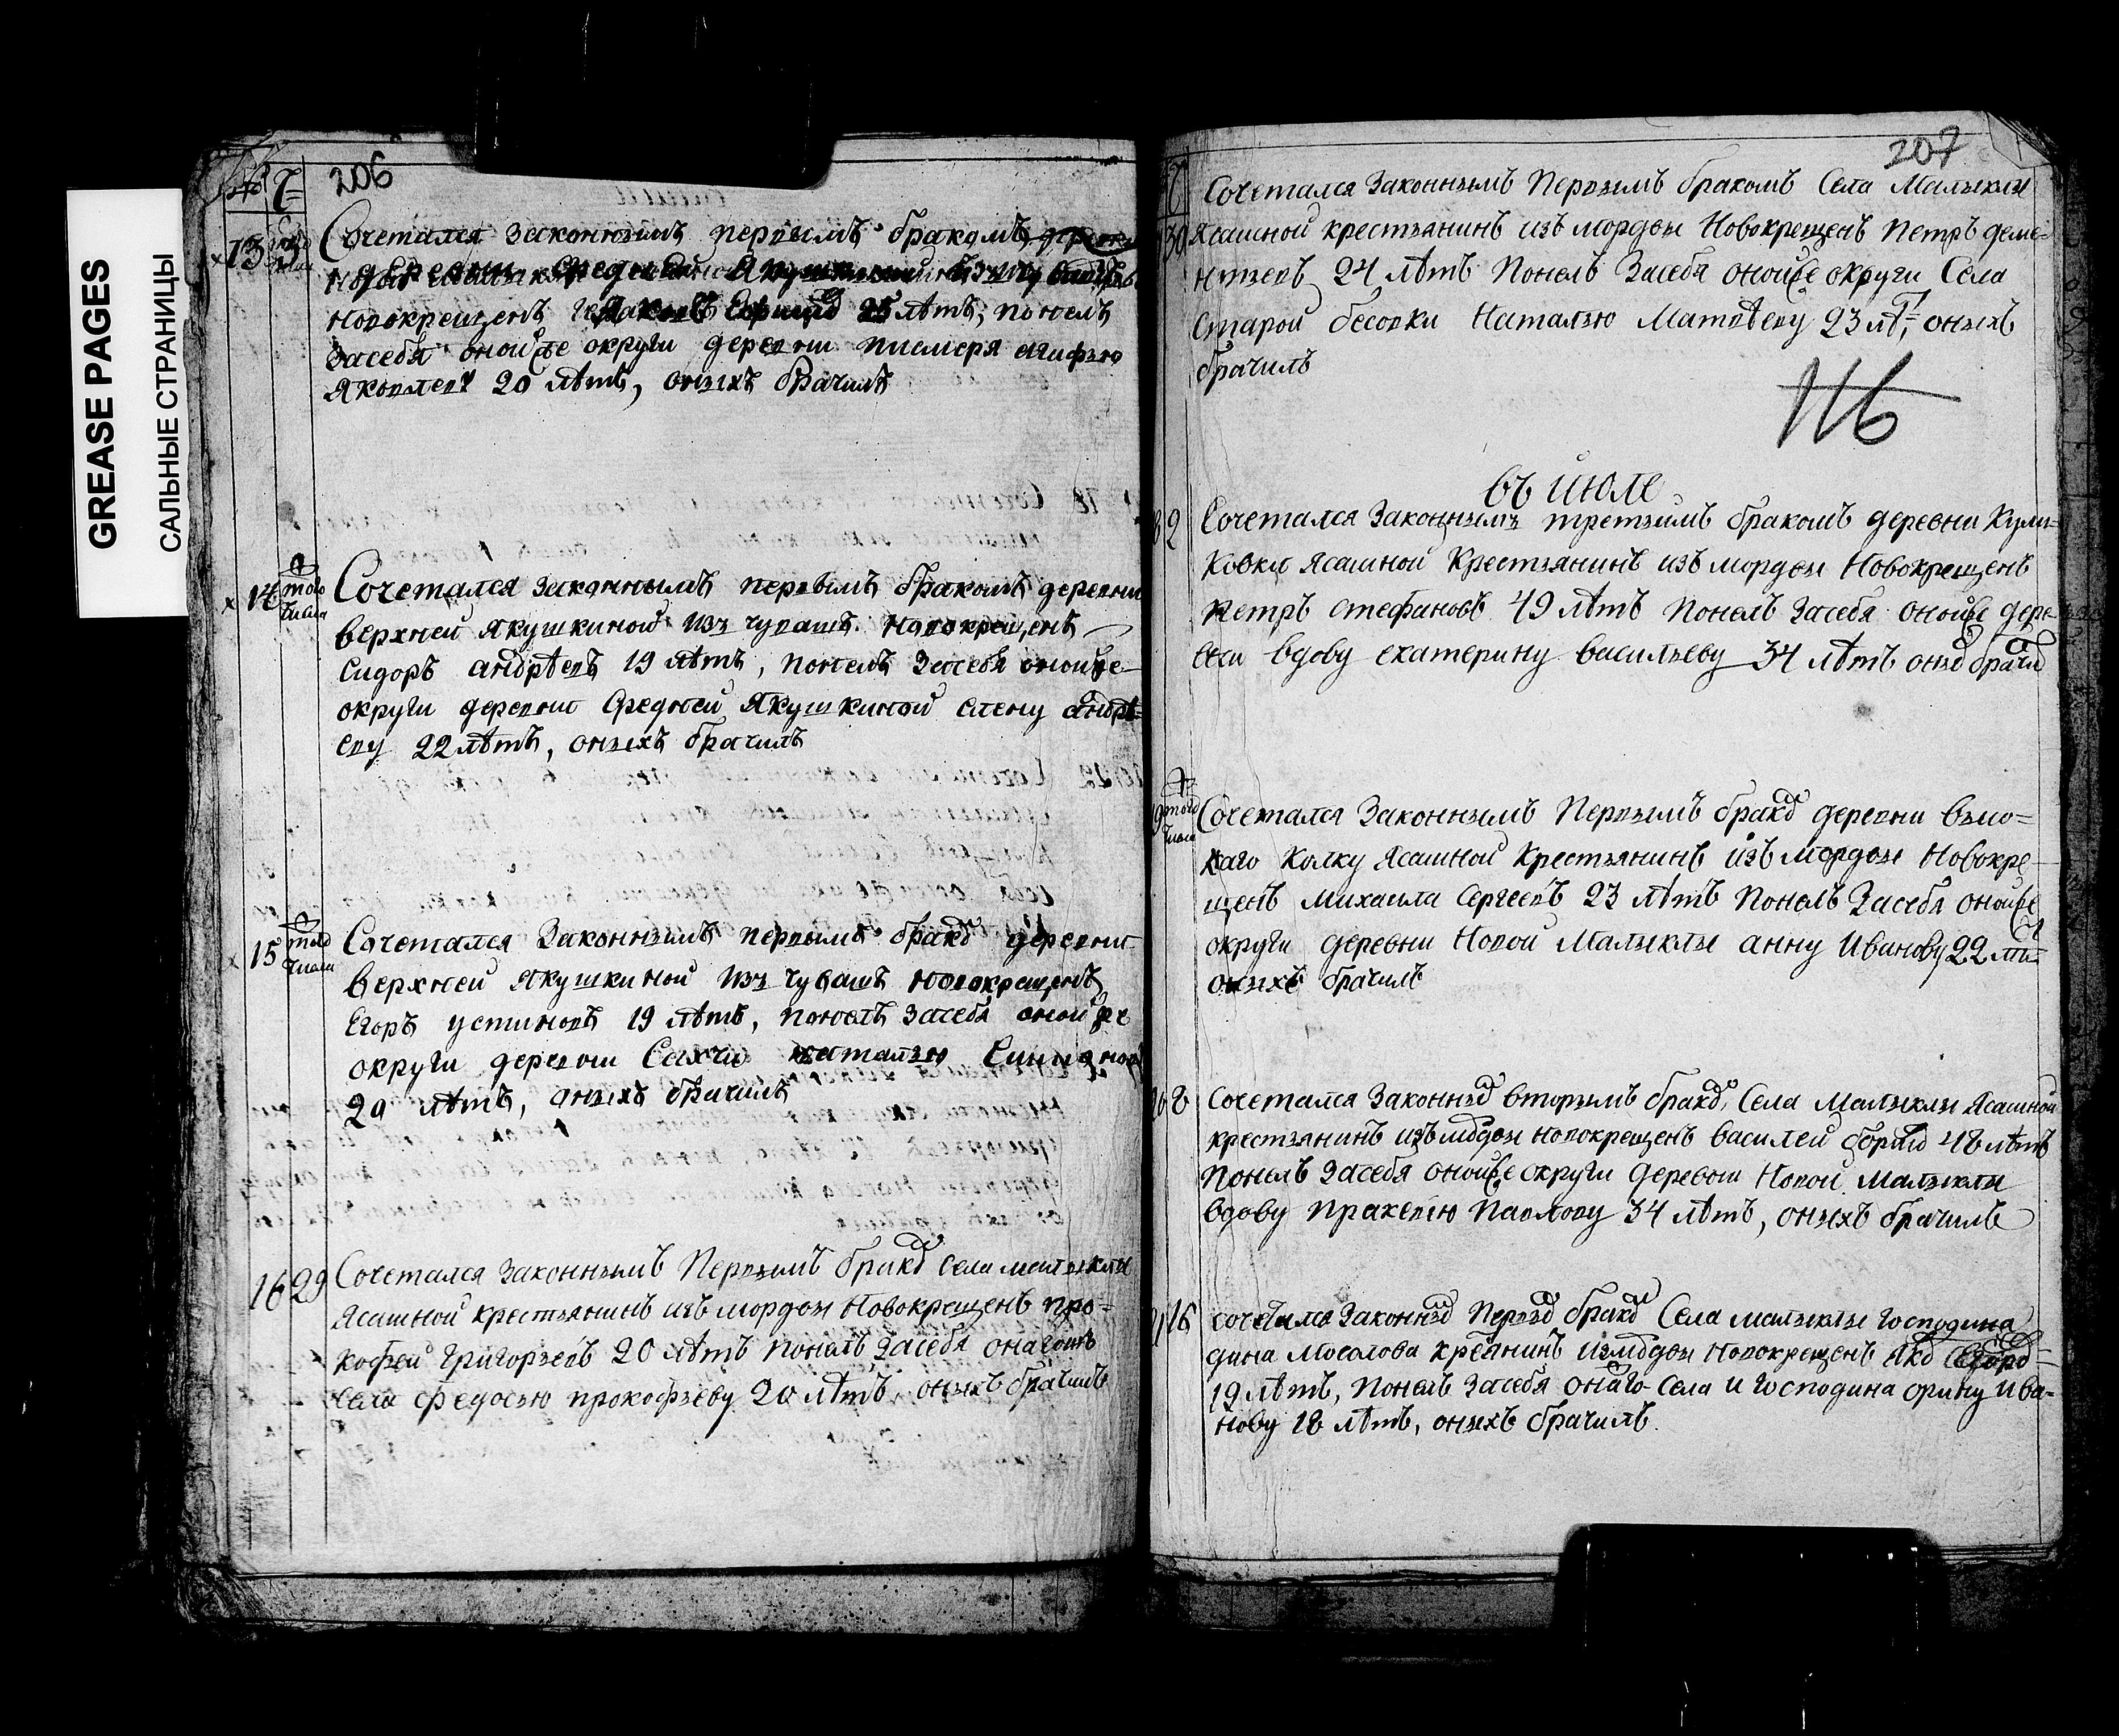 GREASE PAGES
САЛЬНЫЕ СТРАНИЦЫ
206
13
Сочетался законнымъ первымъ бракомъ
деревни Средней Якушкиной изъ чувашъ
новокрещенъ 25 лѣтъ, понелъ
засебя оной же округи деревни писмеря агифью
Яковлеву 20 лѣтъ, оныхъ брачилъ
14 того числа
Сочетался законнымъ первымъ бракомъ деревни
верхней якушкиной изъ чувашъ новокрещенъ
Сидоръ андрѣевъ 19 лѣтъ, понелъ засебя оной же
округи деревни Средней Якушкиной елену андрѣ-
еву 22 лѣтъ, оныхъ брачилъ
15 того числа
Сочетался законнымъ первымъ брако деревни
верхней якушкиной изъ чувашъ новокрещенъ
Егоръ устиновъ 19 лѣтъ, понелъ засебя оной же
округи деревни Сахчи наталью
20 лѣтъ, оныхъ брачилъ
16 29
Сочетался законнымъ Первымъ брако села малыклы
Ясашной крестьянинъ изъ мордвы Новокрещенъ про-
кофей григорьевъ 20 лѣтъ понелъ засебя онагожъ
села федосью прокофьеву 20 лѣтъ, оныхъ брачилъ
207
30
Сочетался Законнымъ Первымъ бракомъ Села Малыклы
Ясашной крестьянинъ изъ мордвы Новокрещенъ Петръ деме-
нтьевъ 24 лѣтъ Понелъ Засебя оной же округи Села
Старой бесовки Наталью Матвѣеву 23 лѣ, оныхъ
брачилъ
116
въ июле
2
Сочетался Законнымъ третьимъ бракомъ деревни Кули-
ковки Ясашной Крестьянинъ изъ мордвы Новокрещенъ
петръ стефановъ 49 лѣтъ Понелъ Засебя оной же дере-
вни вдову екатерину васильеву 34 лѣтъ оны брачи
19 того числа
Сочетался Законнымъ Первымъ брако деревни высо-
каго Колку Ясашной Крестьянинъ изъ мордвы Новокре-
щенъ Михаила Сергеевъ 23 лѣтъ Понелъ Засебя оной же
округи деревни Новой Малыклы анну Иванову 22 лѣ
оныхъ брачилъ
20 8
Сочетался Законны вторымъ брако, Села Малыклы Ясашной
крестьянинъ изъ модвы новокрещенъ василей 48 лѣтъ
Понелъ Засебя оной же округи деревни Новой Малыклы
вдову Праскевію Павлову 34 лѣтъ, оныхъ брачилъ
21 16
сочетался Законны Первы брако Села малыклы господина
дина Мосолова кретянинъ измодвы новокрещенъ
19 лѣтъ, Понелъ Засебя онаго Села и господина орину ива-
нову 18 лѣтъ, оныхъ брачилъ.